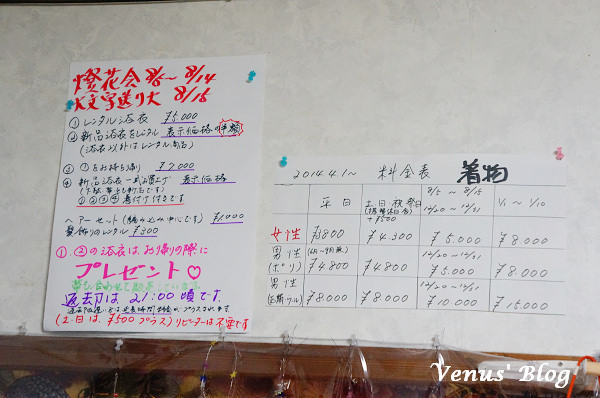 燈花会 8/5～8/14
大文字送り火 8/15
① レンタル浴衣 ¥5,000
② 新品浴衣をレンタル 表示価格の半額
(浴衣以外はレンタル商品)
③ ①をお持ち帰り ¥7,000
④ 新品浴衣一式お買上げ 表示価格
①②③④ 着付け付きです
ヘアーセット(編み込み中心です) ¥1,000
髪飾りのレンタル ¥300
①②の浴衣は、お帰りの際に
プレゼント♡
返却は 21:00 頃です。
(土日は、¥500プラス) リピーターは不要です
2014.4.1～ 料金表 着物
平日 土日祝祭日 +¥500 8/5～8/15 12/20～12/31 1/1～1/10
女性 ¥3800 ¥4.300 ¥5.000 ¥8.000
男性 (ポリ) ¥4800 ¥4,800 12/20～12/31 ¥5.000 ¥8.000
男性 (正絹・ウール) ¥8.000 ¥8.000 ¥10.000 ¥15.000
Venus' Blog